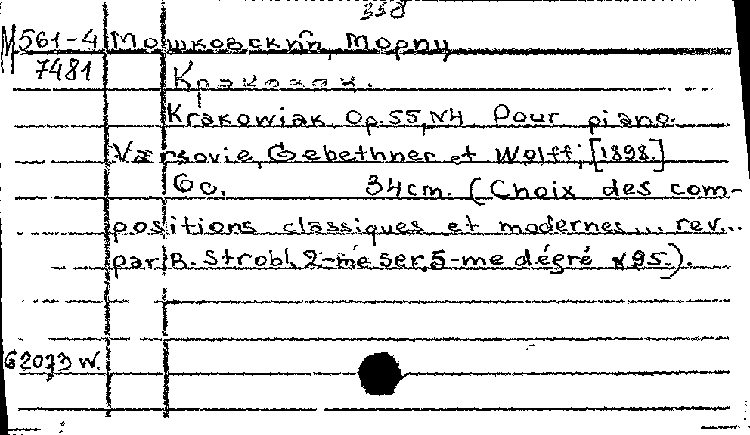 338
М 561-4 Мошковский, Мориц
7481
Краковяк.
Krakowiak, Op. 55, N4 Pour piano.
Varsovie, Gebethner et Wolff, [1898.]
6 c. 34 cm. (Choix des com-
positions classiques et modernes... rev...
par B. Strobl, 2-me ser, 5-me dégré №95.).
62073 W.